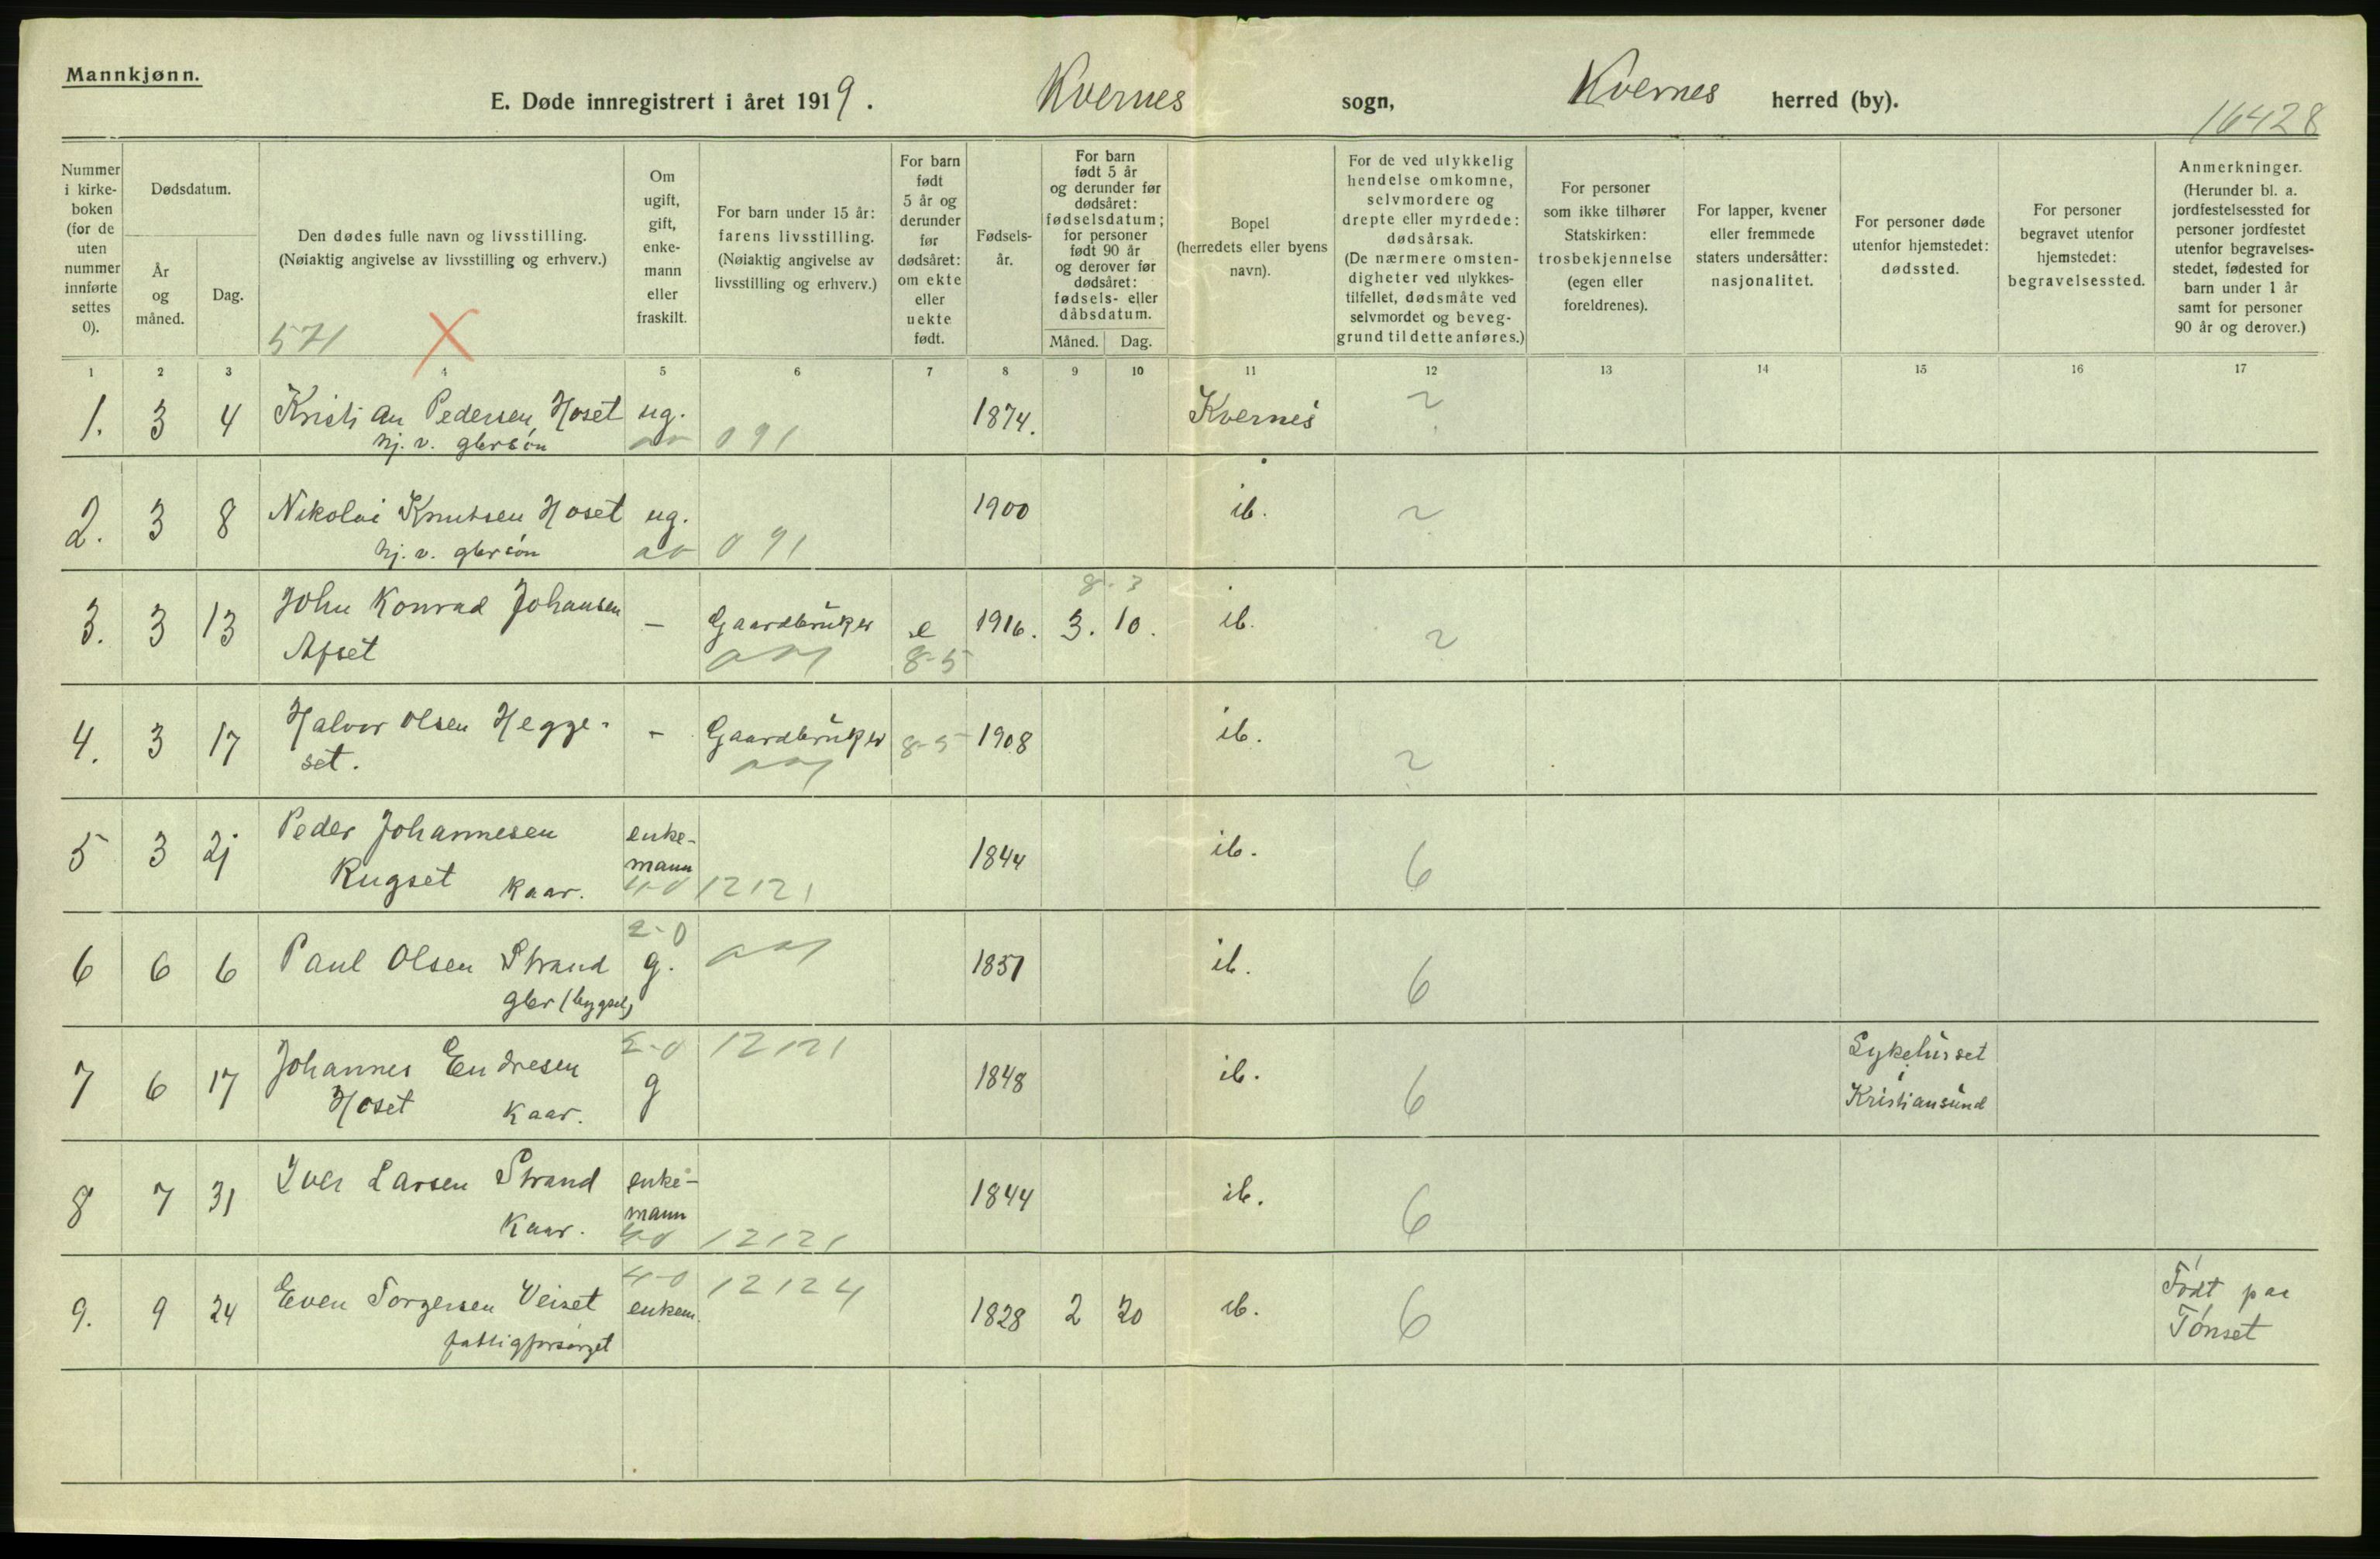 Mannkjønn.
E. Døde innregistrert i året 1919. Kvernes sogn, Kvernes herred (by).
16428
Nummer i kirke-boken (for de uten nummer innførte settes 0).
Dødsdatum.
År og måned.
Dag.
Den dødes fulle navn og livsstilling.
(Nøiaktig angivelse av livsstilling og erhverv.)
571 X
Om ugift, gift, enke-mann eller fraskilt.
For barn under 15 år: farens livsstilling. (Nøiaktig angivelse av livsstilling og erhverv.)
For barn født 5 år og derunder før dødsåret: om ekte eller uekte født.
Fødsels-år.
For barn født 5 år og derunder før dødsåret: fødselsdatum; for personer født 90 år og derover før dødsåret: fødsels- eller dåbsdatum.
Måned. Dag.
Bopel (herredets eller byens navn).
For de ved ulykkelig hendelse omkomne, selvmordere og drepte eller myrdede: dødsårsak. (De nærmere omsten-digheter ved ulykkes-tilfellet, dødsmåte ved selvmordet og beveg-grund til dette anføres.)
For personer som ikke tilhører Statskirken: trosbekjennelse (egen eller foreldrenes).
For lapper, kvener eller fremmede staters undersåtter: nasjonalitet.
For personer døde utenfor hjemstedet: dødssted.
For personer begravet utenfor hjemstedet: begravelsessted.
Anmerkninger. (Herunder bl. a. jordfestelsessted for personer jordfestet utenfor begravelses-stedet, fødested for barn under 1 år samt for personer 90 år og derover.)
1 2 3 4 5 6 7 8 9 10 11 12 13 14 15 16 17
1. 3 4 Kristian Pedersen Hoset ug. 1874. Kvernes
hj. v. gbrsøn 091
2. 3 8 Nikolai Knutsen Hoset ug. 1900 ib.
hj. v. gbrsøn 091
8. 3
3. 3 13 John Konrad Johansen — Gaardbruker e 1916. 3. 10. ib.
Afset 8-5
4. 3 17 Halvor Olsen Hegge- - Gaardbruker 8-5 1908 ib.
set.
5 3 21 Peder Johannesen enke-mann 1844 ib. 6
Rugset kaar. 4-0 12121
2-0
6 6 6 Paul Olsen Strand g. 1851 ib. 6
gbr (bygsel)
2-0 12121
7 6 17 Johannes Endresen g 1848 ib. 6 Sykehuset i Kristiansund
Hoset kaar.
8 7 31 Iver Larsen Strand enke-mann 1844 ib. 6
kaar. 4-0 12121
4-0 12124
9. 9 24 Even Torgersen Veiset enkem. 1828 2 20 ib. 6 Født paa Tønset
fattigforsørget